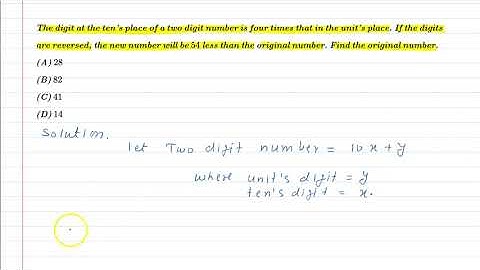 The digit at the ten's place of a two digit number is four times that in the unit's place. If the digits
are reversed, the new number will be 54 less than the original number. Find the original number.
(A) 28
(B) 82
(C) 41
(D) 14
Solution.
let Two digit number = 10x+y
where unit's digit = y
ten's digit = x.